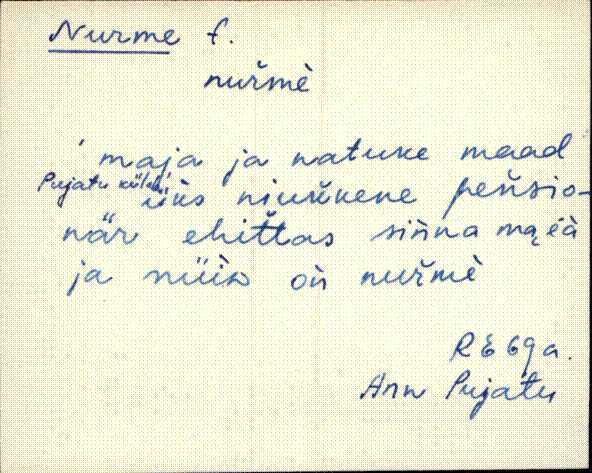 Nurme t.
nuřmè
' maja ja natuke maad '
Pujatu külas
üiks niuukene peňsio-
när ehittas siňna mąėà
ja nüiò oň nuřmè
RE 69 a.
Ann Pujatu